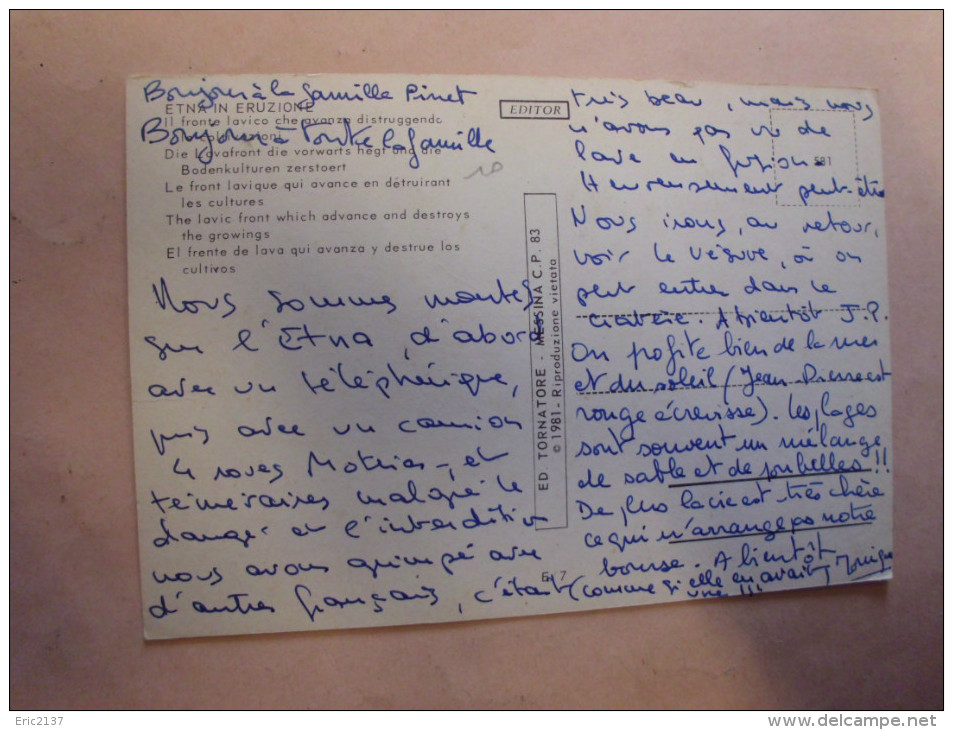 Bonjour à la famille Pinet
ETNA IN ERUZIONE
Il fronte lavico che avanza distruggendo
Bonjour à toute la famille
Die Lavafront die vorwarts hegt und die
Bodenkulturen zerstoert
Le front lavique qui avance en détruirant
les cultures
The lavic front which advance and destroys
the growings
El frente de lava qui avanza y destrue las
cultivos
Nous sommes montés
sur l'Etna, d'abord
avec un téléphérique,
puis avec un camion
4 roues Motrices, et
téméraires malgré le
danger et l'interdiction
nous avons grimpé avec
d'autres français, c'était
EDITOR
ED. TORNATORE - MESSINA C.P. 83
© 1981 - Riproduzione vietata
581
E/7
très beau, mais nous
n'avons pas vu de
lave en fusion.
Heureusement peut-être
Nous irons, au retour,
voir le Vésuve, où on
peut entrer dans le
cratère. A bientôt J.P.
On profite bien de la mer
et du soleil (Jean Pierre est
rouge écrevisse). Les plages
sont souvent un mélange
de sable et de poubelles !!
De plus la vie est très chère
ce qui n'arrange pas notre
bourse. A bientôt
(comme si elle en avait Monique
une !!!
Eric2137
www.delcampe.net